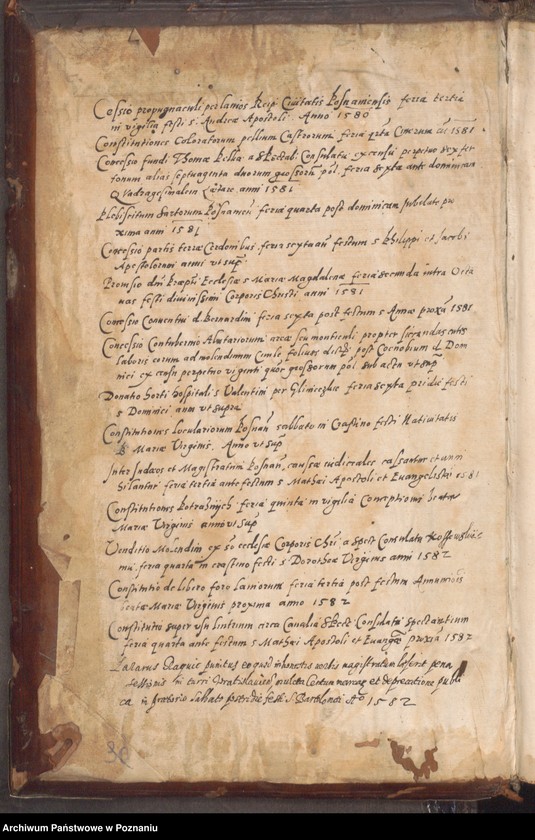 Cessio propugnaculi per lanios Reip Civitatis Posnaniensis feria tertia
in vigilia festi s. Andreæ Apostoli. Anno 1580
Constitutiones Coloratorum pellium Castrorum feria qrta Cinerum 1581
Concessio fundi Thomæ a Spectab. Consulatu ex censu perpetuo sex fer
tonum alias septuaginta duorum grossorum pol. feria sexta ante dominicam
Quadragesimalem Lætare anni 1581
Plebiscitum Sartorum Posnanien feria quarta post dominicam Jubilate pro
xima anni 1581
Concessio partis terræ Cerdonibus, feria sexta festum s Philippi et Jacobi
Apostolorum anni ut sup
Provisio Ecclesiæ s Mariæ Magdalenæ feria secunda intra Octa
vas festi divinissimi Corporis Christi anni 1581
Concessio Conventui d. Bernardini feria sexta post festum s Annæ proxa 1581
Concessio Contubernio Alutariorum areæ seu monticuli propter siccandas cutes
laboris eorum ad molendinum post Coenobium Dom
nici ex censu perpetuo viginti quor grossorum pol sub acta ut sup
Donatio horti Hospitali s Valentini per feria sexta pridie festi
s Dominici anni ut supra
Constitutiones Loculariorum Posnan sabbato in Crastino festi Nativitatis
B Mariæ Virginis. Anno ut sup
Inter Judæos et Magistratum Posnan, causæ iudiciales cassantur et anni
hilantur feria tertia ante festum s Mathæi Apostoli et Evangelistæ 1581
Constitutiones feria quinta in vigilia Conceptionis beatæ
Mariæ Virginis anno ut sup
Venditio Molendini ecclesiæ Corporis Chri a Spect Consulatu
feria quarta in crastino festi s Dorotheæ Virginis anni 1582
Constitutio de libero foro Laniorum feria tertia post festum Annuntiois
beatæ Mariæ Virginis proxima anno 1582
Constitutio super usu lintrium circa Canalia Spect Consulatui spectantium
feria quarta ante festum s Mathæi Apostoli et Evangæ proxia 1582
Lazarus punitus eo quod inhonestis verbis magistratum læserit pena
sessionis in turri mulcta Centum marcas et deprecatione publi
ca in prætorio sabbato postridie fest. S. Bartholomei Ao 1582
38
Archiwum Państwowe w Poznaniu